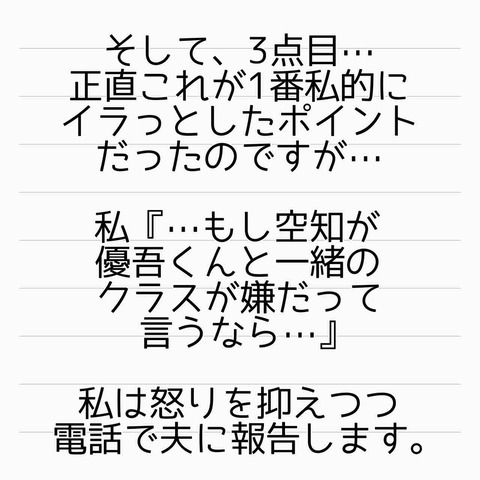 そして、3点目…
正直これが1番私的に
イラっとしたポイント
だったのですが…
私『…もし空知が
優吾くんと一緒の
クラスが嫌だって
言うなら…』
私は怒りを抑えつつ
電話で夫に報告します。